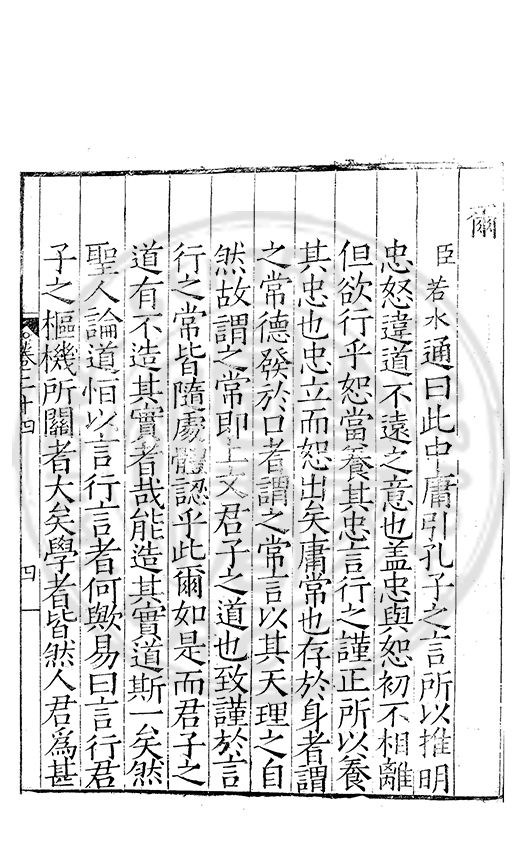 爾
臣若水通曰此中庸引孔子之言所以推明
忠恕違道不遠之意也蓋忠與恕初不相離
但欲行乎恕當養其忠言行之謹正所以養
其忠也忠立而恕出矣庸常也存於身者謂
之常德發於口者謂之常言以其天理之自
然故謂之常即上文君子之道也致謹於言
行之常皆隨處體認乎此爾如是而君子之
道有不造其實者哉能造其實道斯一矣然
聖人論道恒以言行言者何歟易曰言行君
子之樞機所關者大矣學者皆然人君爲甚
卷二十四
四